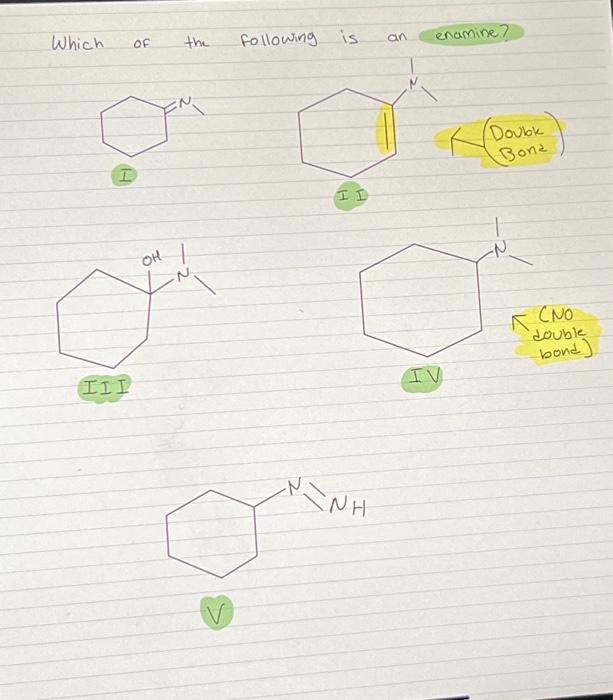 Which of the following is an enamine?
N
I
N
II
(Double
Bond)
OH
N
III
N
IV
(NO
double
bond)
N
NH
V